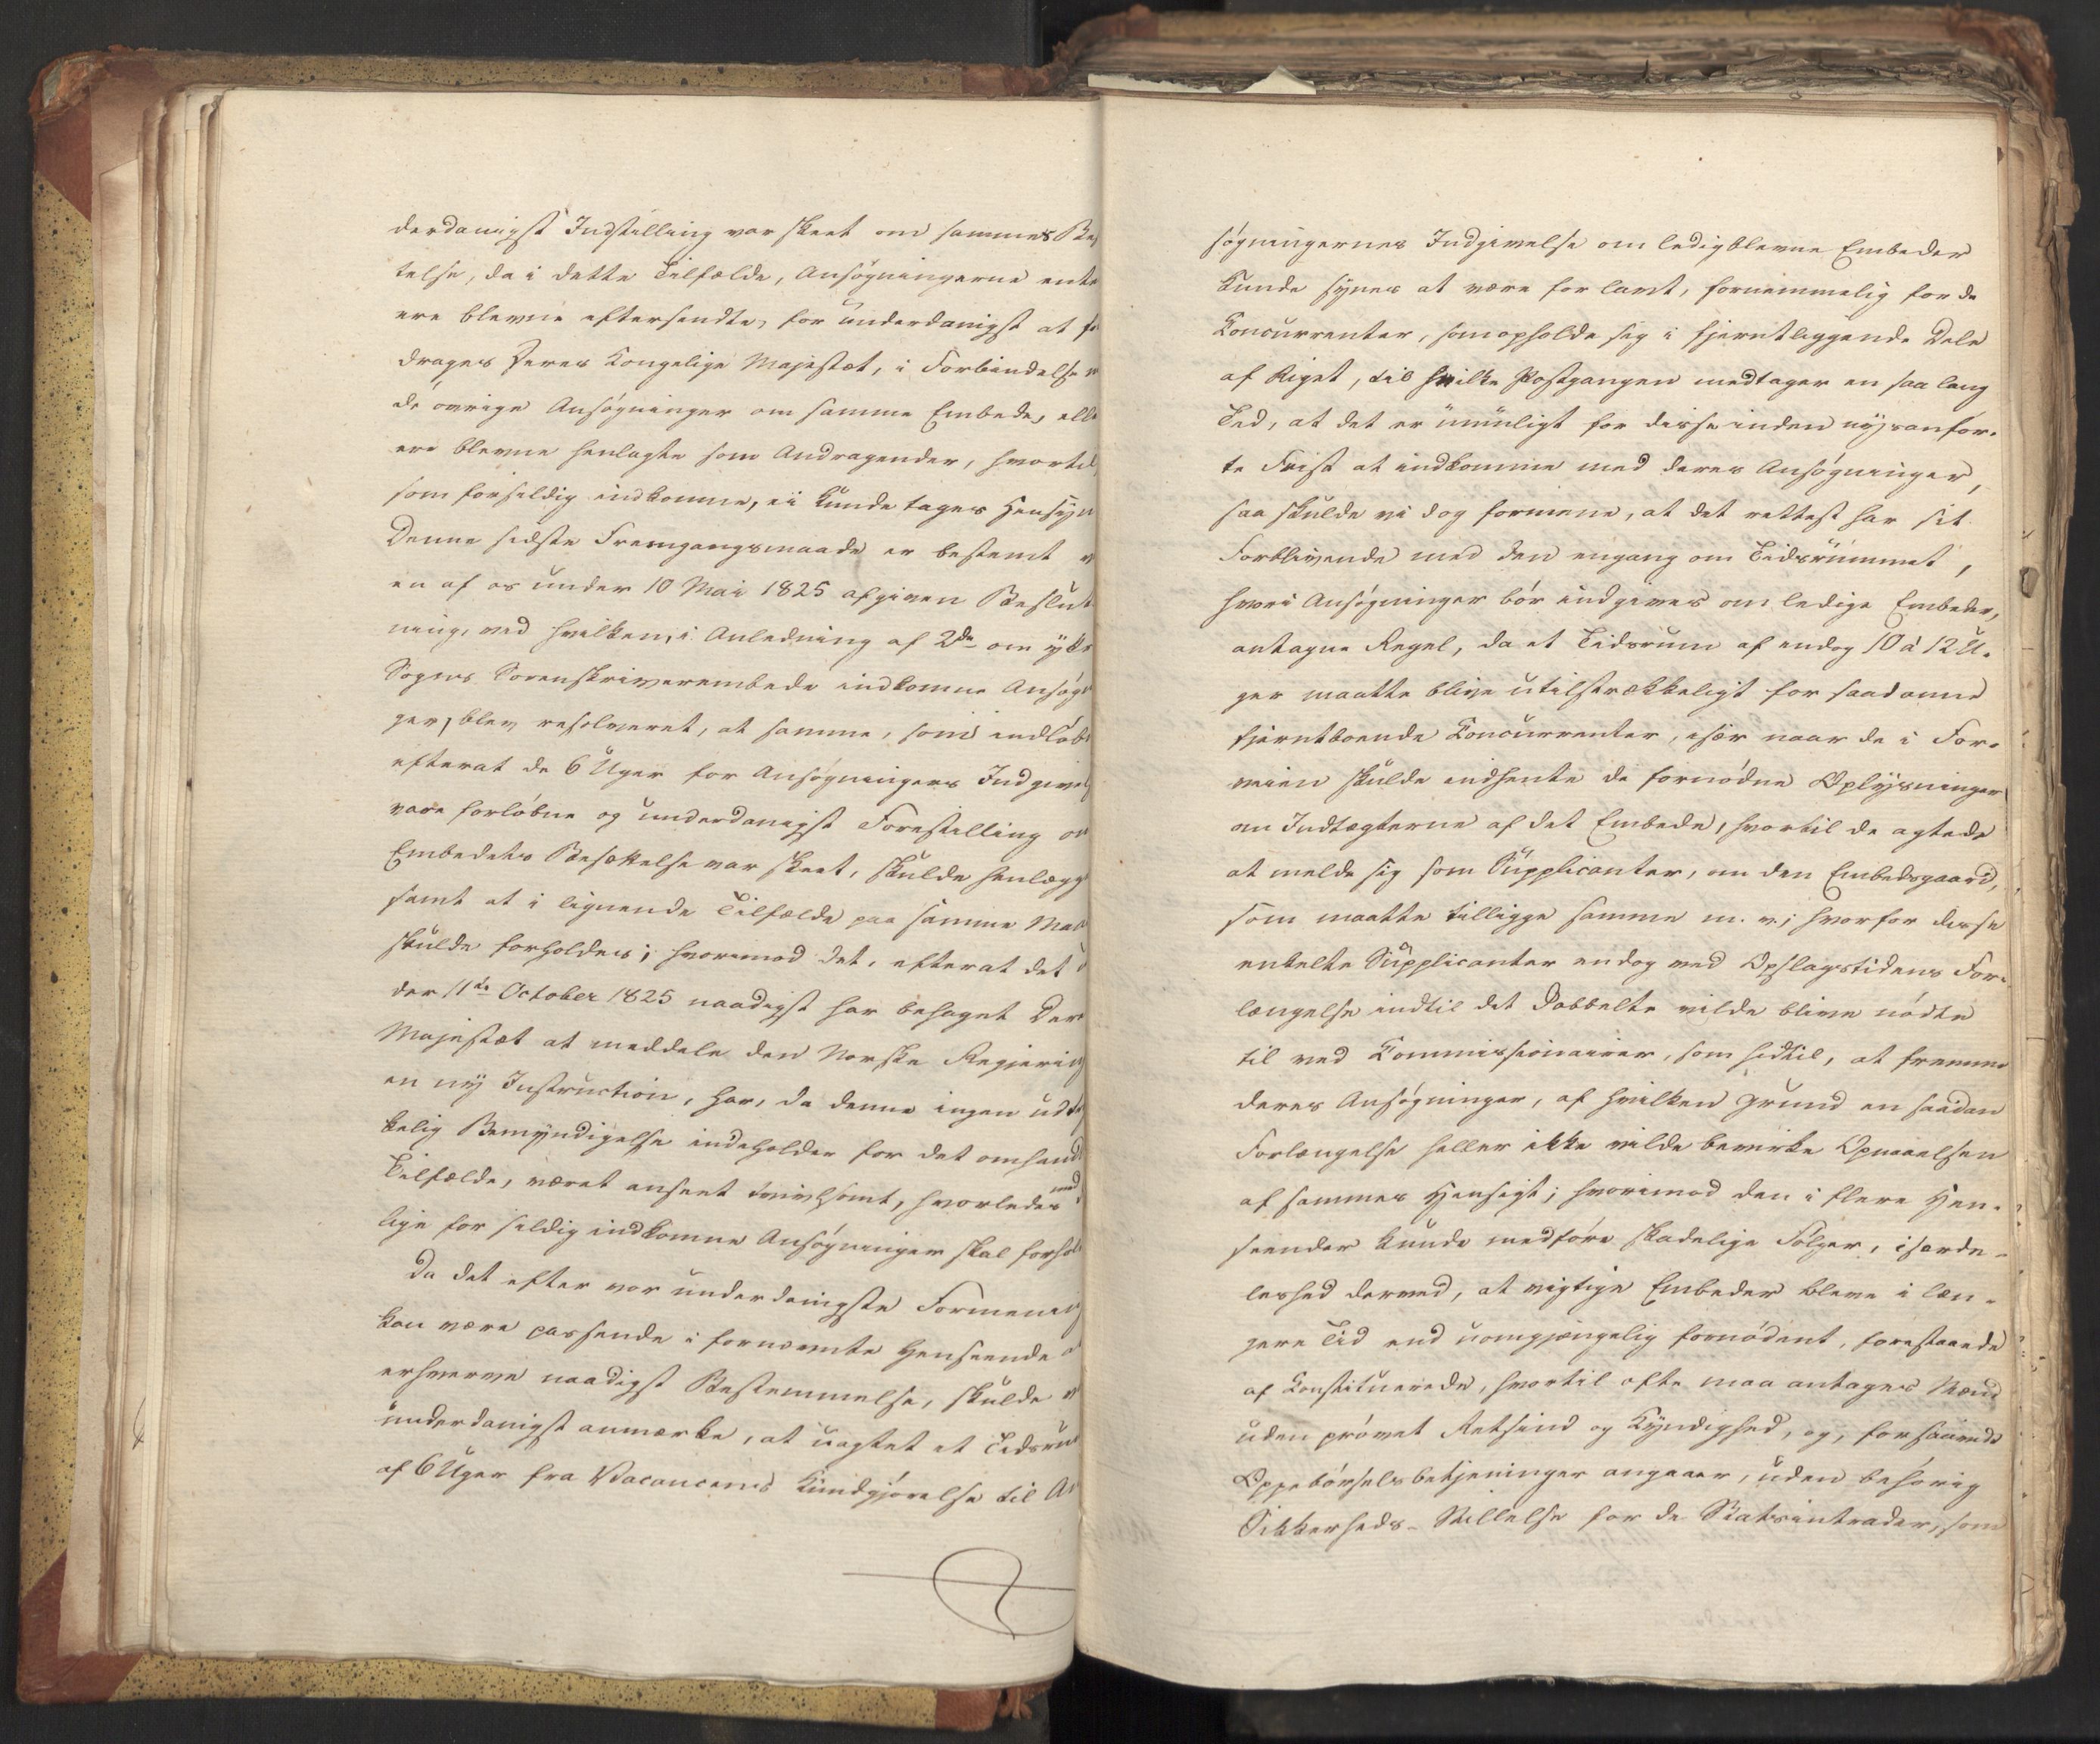 derdanigst Indstilling var skeet om sammes Be
telse, da i dette Tilfælde, Ansøgningerne ente
ere blevne eftersendte, for underdanigst at fo
drages Deres Kongelige Majestæt, i Forbindelse
de øvrige Ansøgninger om samme Embede, elle
ere blevne henlagte som Andragender, hvortil,
som forsildig indkomne, ei kunde tages Hensyn
Denne sidste Fremgangsmaade er bestemt
en af os under 10 Mai 1825 afgiven Beslut
ning, ved hvilken, i Anledning af 2de om
Sogns Sorenskriverembede indkomne Ansøgn
ger, blev resolveret, at samme, som indløb
efterat de 6 Uger for Ansøgningers Indgivel
vare forløbne og underdanigst Forestilling om
Embedets Besættelse var skeet, skulde henlægg
samt at i lignende Tilfælde paa samme Maa
skulde forholdes; hvorimod det, efterat det
der 11te October 1825 naadigst har behaget Der
Majestæt at meddele den Norske Regjering
en ny Instruction, har, da denne ingen udtry
kelig Bemyndigelse indeholder for det omhand
Tilfælde, været anseet tvivlsomt, hvorledes med
lige for sildig indkomne Ansøgninger skal forhol
Da det efter vor underdanigste Formening
kan være passende i fornævnte Henseende at
erhverve naadigst Bestemmelse, skulde vi
underdanigst anmærke, at uagtet et Tidsrum
af 6 Uger fra Vacancens Kundgjørelse til An
søgningernes Indgivelse om ledigblevne Embeder
kunde synes at være for lavt, fornemmelig for de
Concurrenter, som opholde sig i fjerntliggende Dele
af Riget, til hvilke Postgangen medtager en saa lang
Tid, at det er umuligt for disse inden nysanfør-
te Frist at indkomme med deres Ansøgninger,
saa skulde vi dog formene, at det rettest har sit
Forblivende med den engang om Tidsrummet,
hvori Ansøgninger bør indgives om ledige Embeder,
antagne Regel, da et Tidsrum af endog 10 à 12 U-
ger maatte blive utilstrækkeligt for saadanne
fjerntboende Concurrenter, især naar de i For-
veien skulde indhente de fornødne Oplysninger
om Indtægterne af det Embede, hvortil de agtede
at melde sig som Supplicanter, om den Embedsgaard,
som maatte tilligge samme m. v; hvorfor disse
enkelte Supplicanter endog ved Opslagstidens For-
længelse indtil det Dobbelte vilde blive nødte
til ved Commissionairer, som hidtil, at fremme
deres Ansøgninger, af hvilken Grund en saadan
Forlængelse heller ikke vilde bevirke Opnaaelsen
af sammes Hensigt; hvorimod den i flere Hen-
seender kunde medføre skadelige Følger, isærde-
leshed derved, at vigtige Embeder bleve i læn-
gere Tid end uomgjængelig fornødent, forestaaede
af Constituerede, hvortil ofte maa antages Mænd
uden prøvet Retsind og Kyndighed, og, forsaavidt
Oppebørselsbetjeninger angaaer, uden behørig
Sikkerheds-Stillelse for de Statsintrader, som